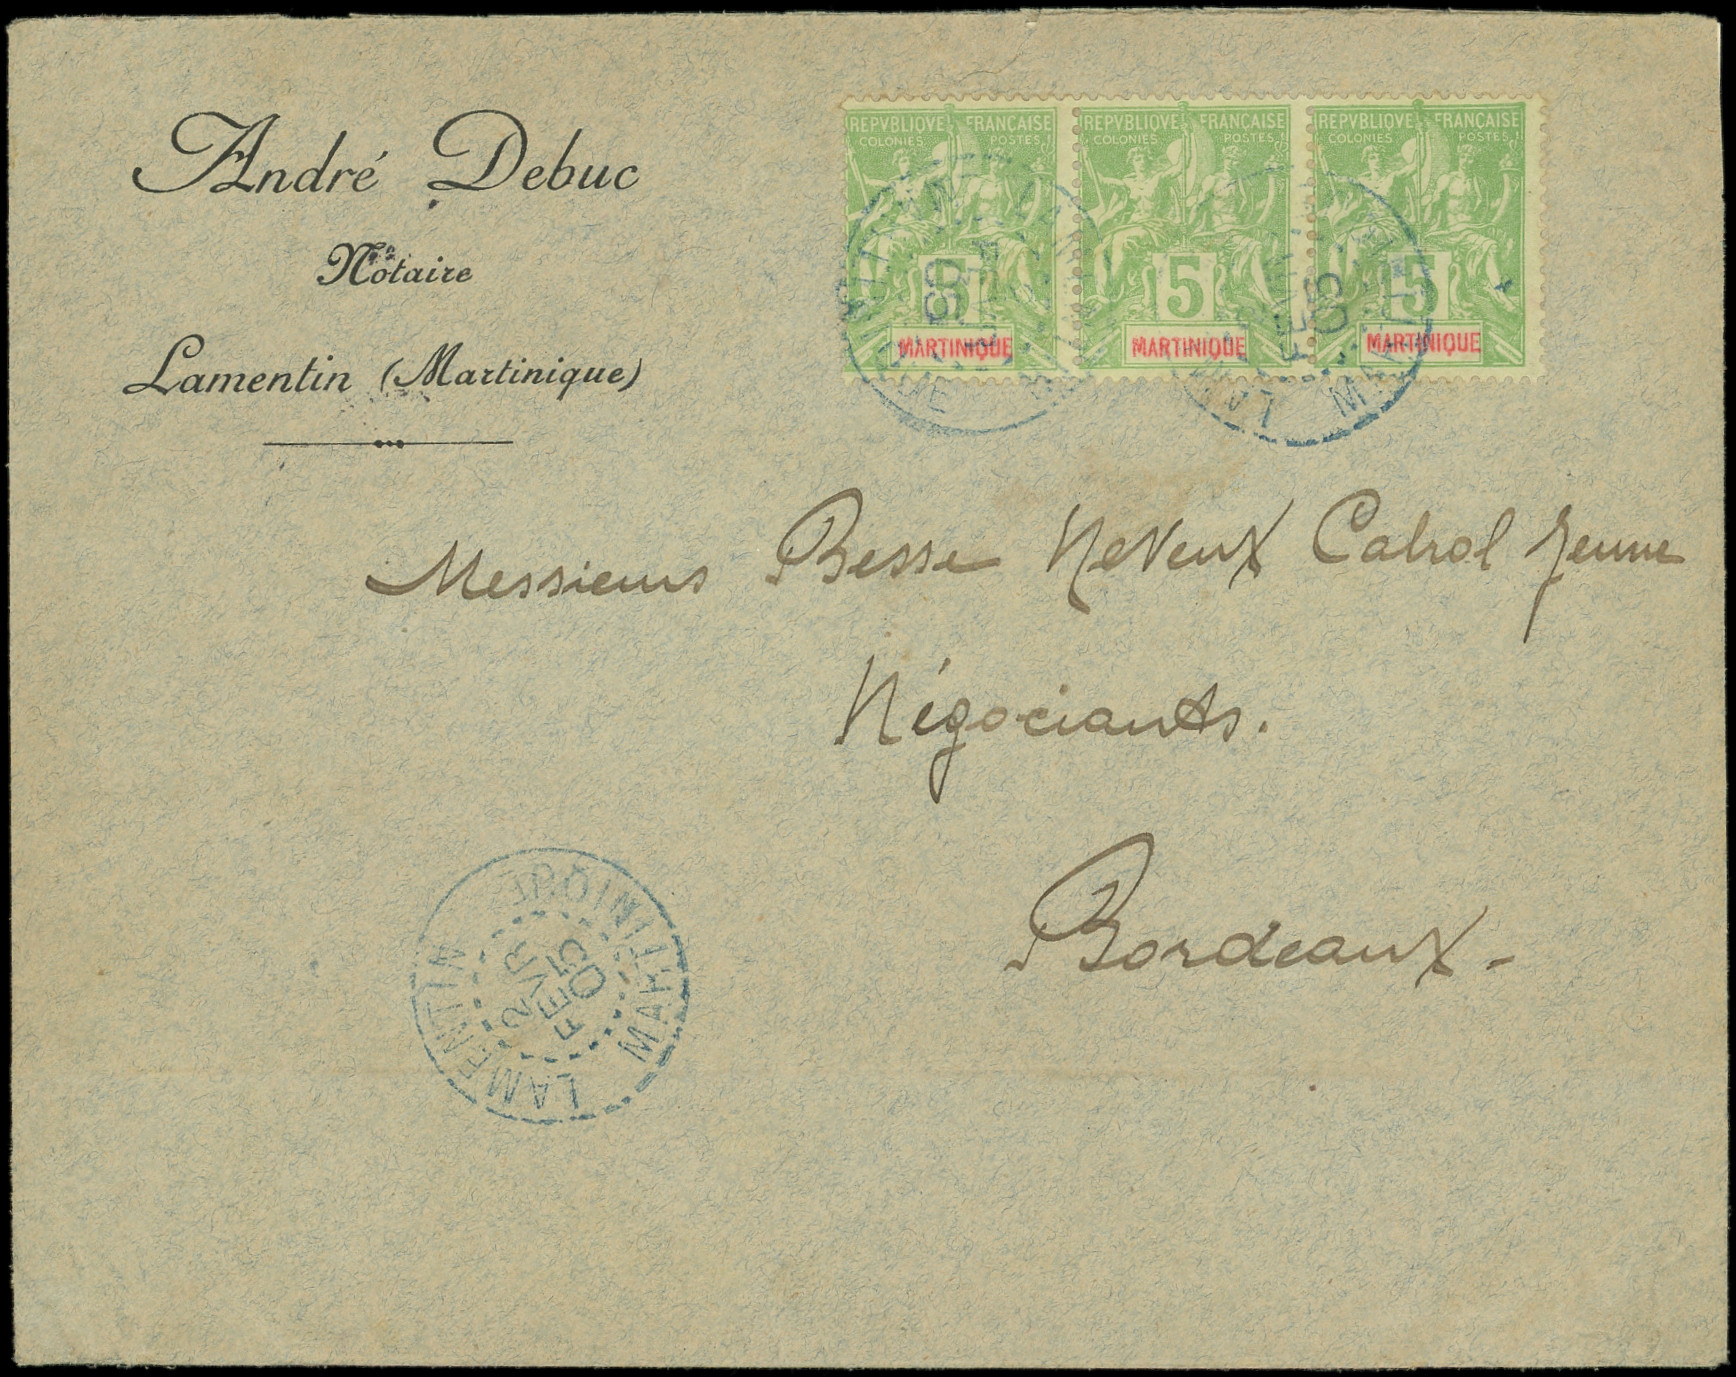 André Debuc
Notaire
Lamentin (Martinique)
REPVBLIQVE FRANÇAISE
COLONIES POSTES
5
MARTINIQUE
REPVBLIQVE FRANÇAISE
COLONIES POSTES
5
MARTINIQUE
REPVBLIQVE FRANÇAISE
COLONIES POSTES
5
MARTINIQUE
05
Messieurs Besse Neveux Cabrol Jeune
Négociants.
Bordeaux -
LAMENTIN
2
FEVR
05
MARTINIQUE